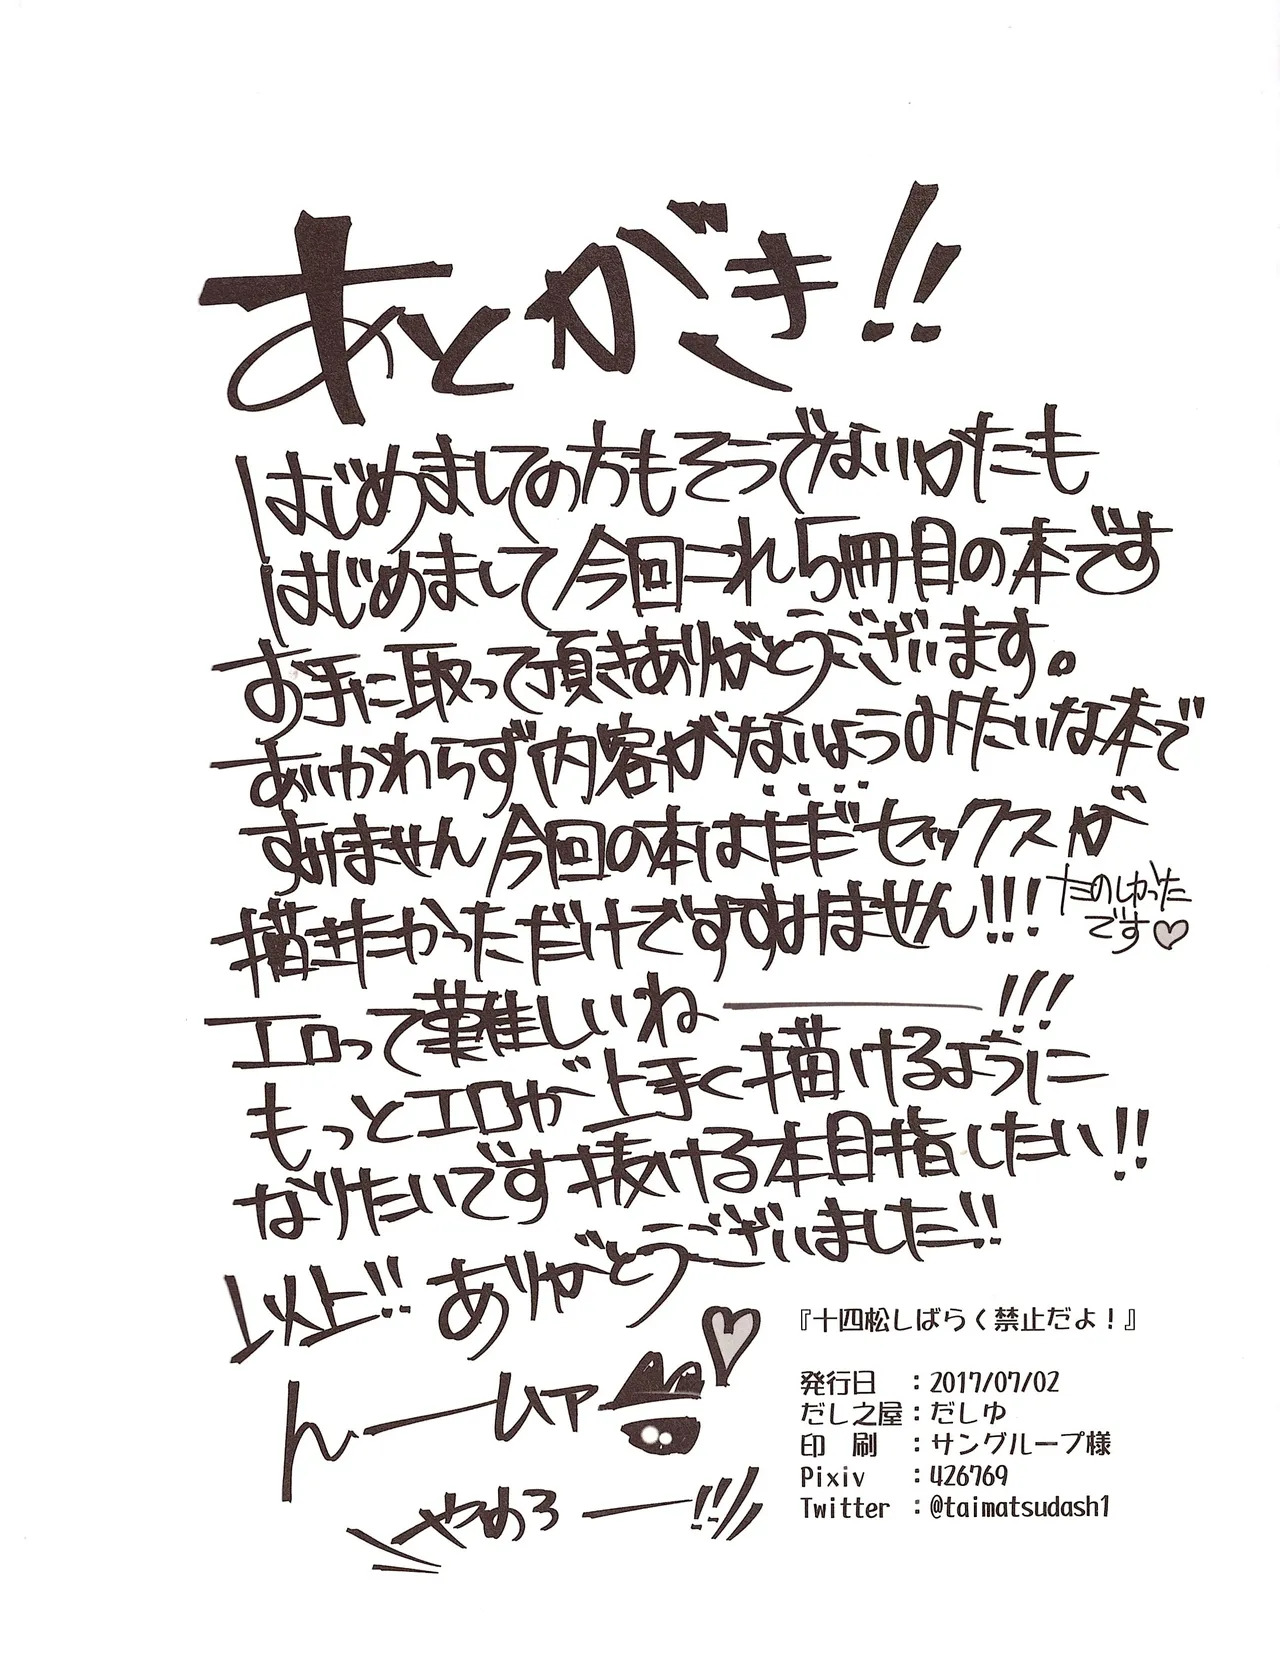 あとがき!!
はじめましての方もそうでないかたも
はじめまして今回これ5冊目の本です
お手に取って頂きありがとうございます。
あいかわらず内容がないようみたいな本で
すみません今回の本はただセックスが
描きたかっただけですすみません!!!
たのしかった
です♡
エロって難しいね――!!!
もっとエロが上手く描けるように
なりたいです抜ける本目指したい!!
以上!! ありがとうございました!!
んームァ
やめろー!!
『十四松しばらく禁止だよ!』
発行日 :2017/07/02
だし之屋:だしゆ
印 刷 :サングループ様
Pixiv :426769
Twitter :@taimatsudash1